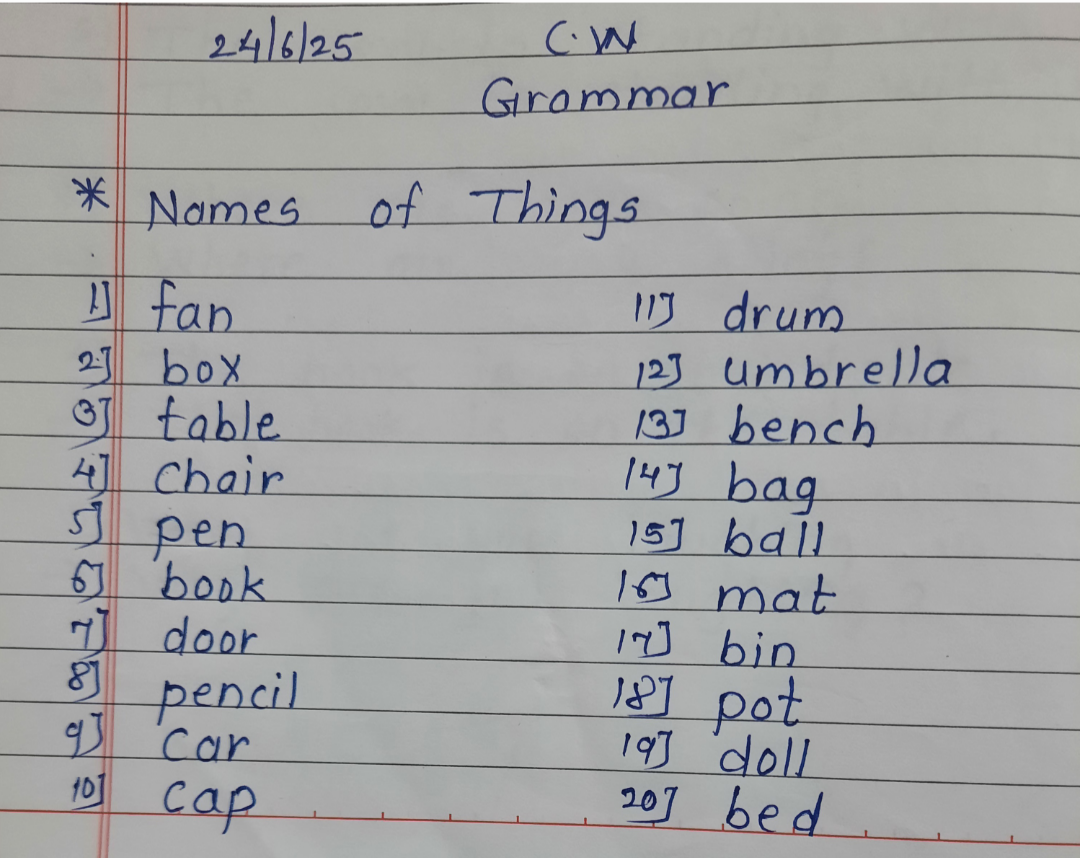 24/6/25 C.W
Grammar
* Names of Things
1] fan
2] box
3] table
4] chair
5] pen
6] book
7] door
8] pencil
9] car
10] cap
11] drum
12] umbrella
13] bench
14] bag
15] ball
16] mat
17] bin
18] pot
19] doll
20] bed